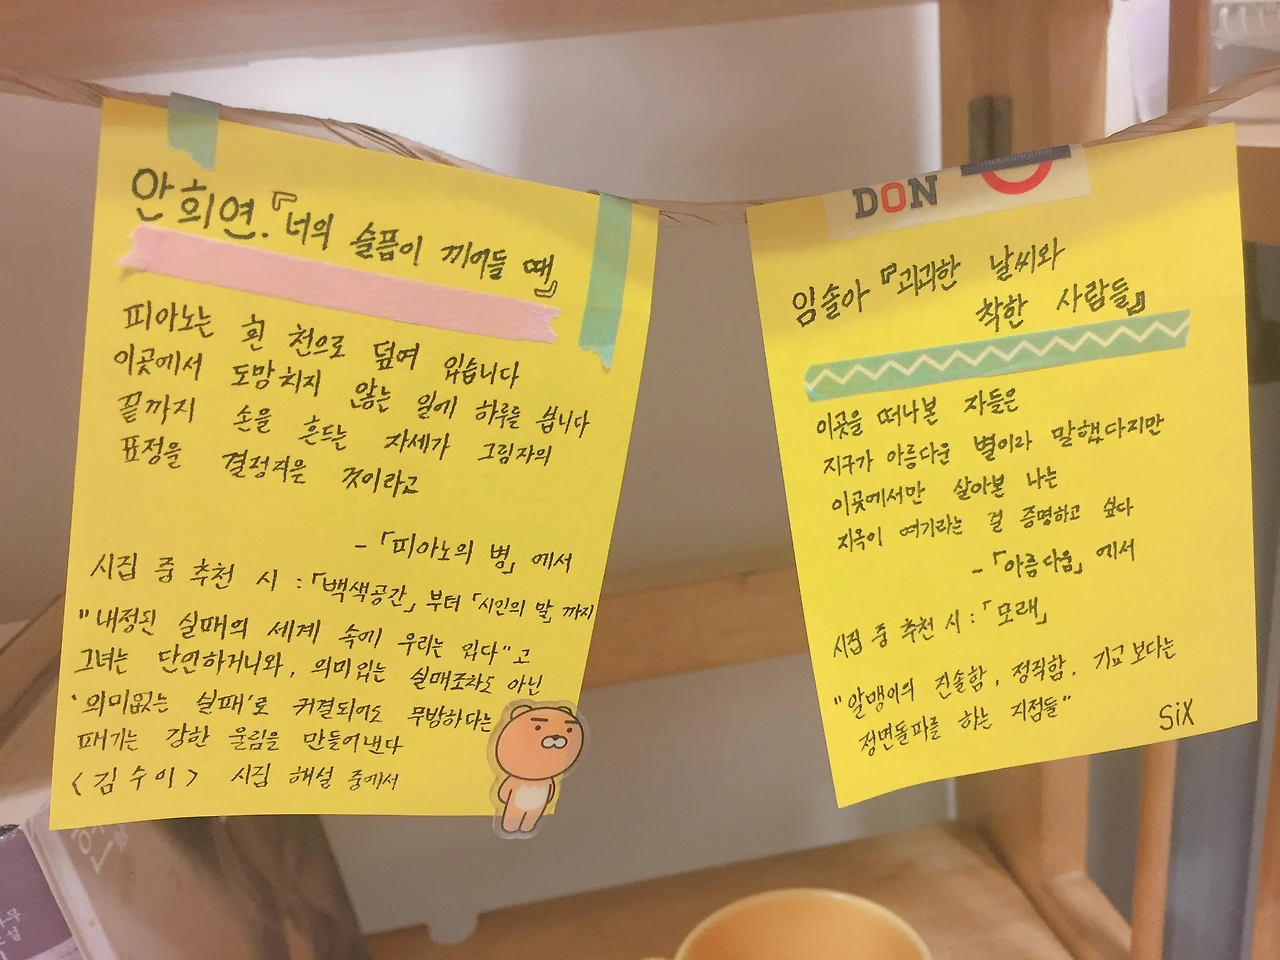 안희연.『너의 슬픔이 끼어들 때』
피아노는 흰 천으로 덮여 있습니다
이곳에서 도망치지 않는 일에 하루를 씁니다
끝까지 손을 흔드는 자세가 그림자의
표정을 결정지은 것이라고
-「피아노의 병」에서
시집 중 추천 시 :「백색공간」부터「시인의 말」까지
"내정된 실패의 세계 속에 우리는 있다"고
그녀는 단언하거니와, 의미있는 실패조차도 아닌
'의미없는 실패'로 귀결되어도 무방하다는
패기는 강한 울림을 만들어낸다
<김수이> 시집 해설 중에서
DON
UNDERGROUND
임솔아『괴괴한 날씨와
착한 사람들』
이곳을 떠나본 자들은
지구가 아름다운 별이라 말했다지만
이곳에서만 살아본 나는
지옥이 여기라는 걸 증명하고 싶다
-「아름다움」에서
시집 중 추천 시 :「모래」
"알맹이의 진솔함, 정직함, 기교보다는
정면돌파를 하는 지점들"
SiX